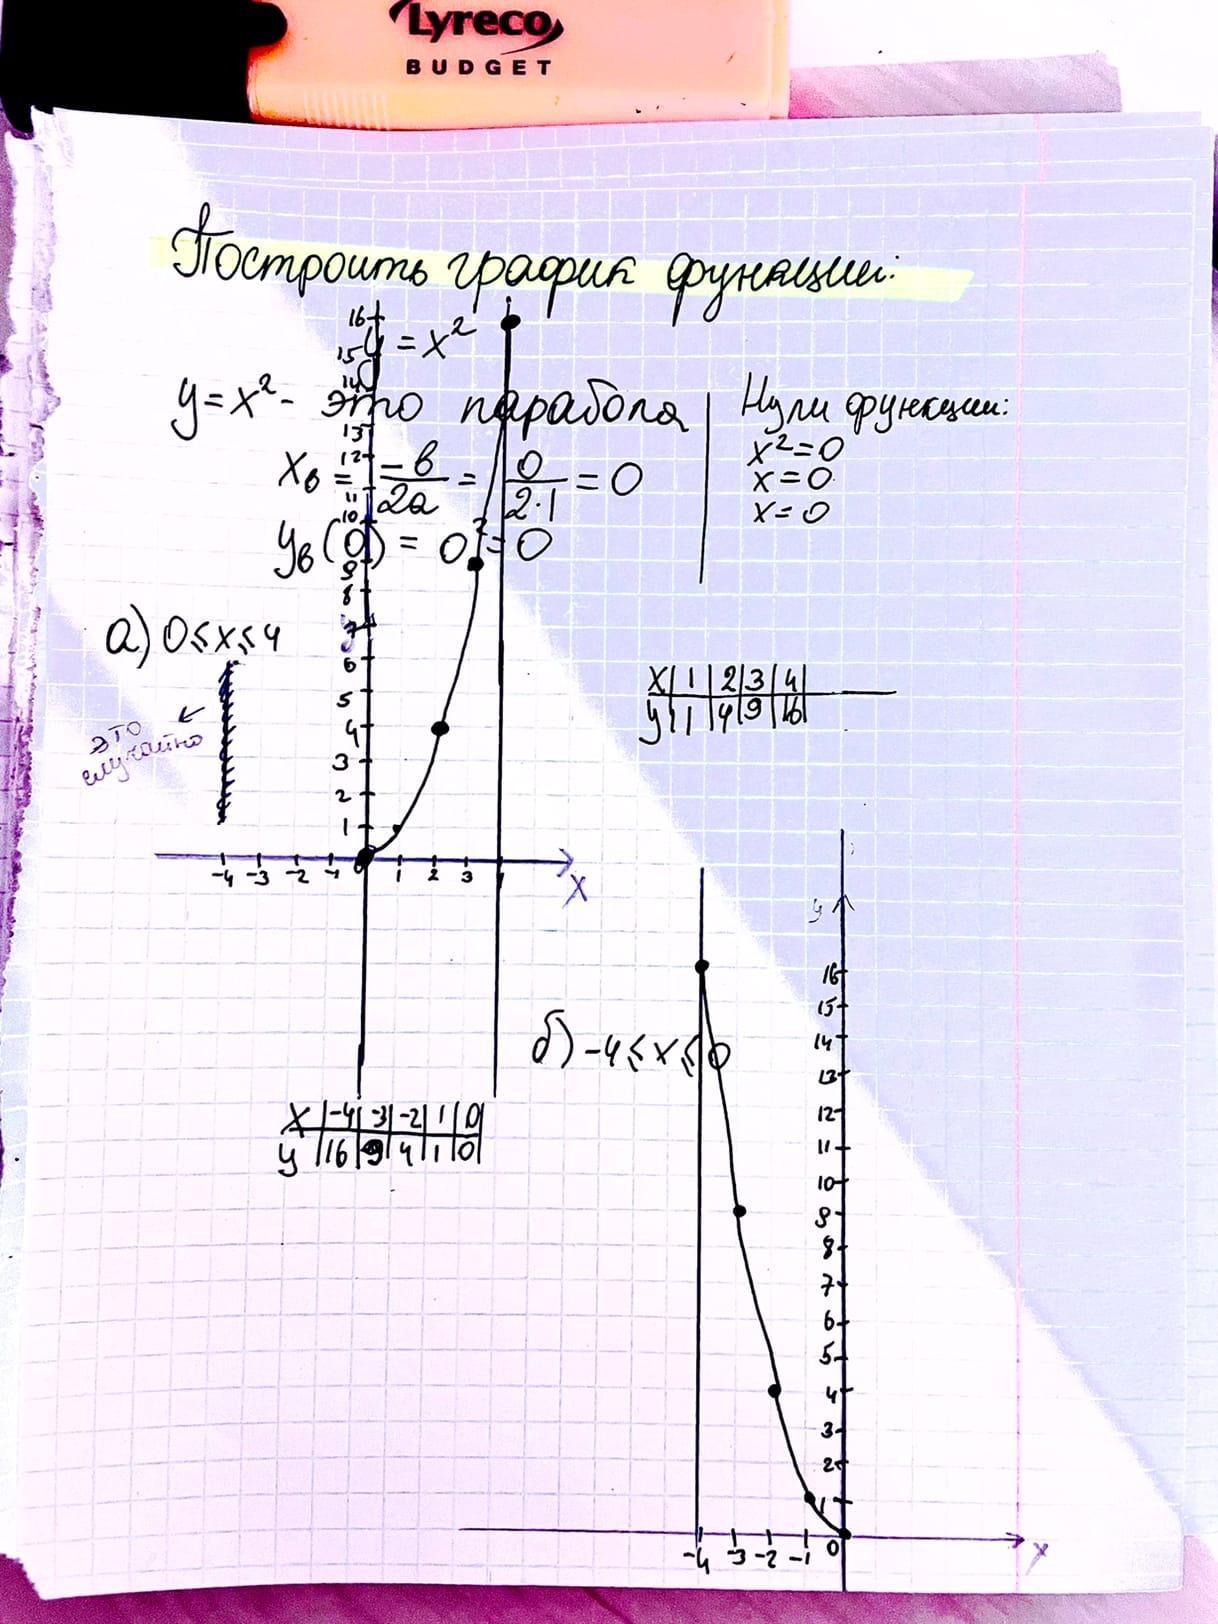 Lyreco
BUDGET
Построить график функции:
y = x²
y = x² - это парабола
xв = -в/2a = 0/2·1 = 0
yв(0) = 0² = 0
Нули функции:
x² = 0
x = 0
x = 0
а) 0 ≤ x ≤ 4
это
случайно
x | 1 | 2 | 3 | 4 |
y | 1 | 4 | 9 | 16 |
16
15
14
13
12
11
10
9
8
7
6
5
4
3
2
1
-4 -3 -2 -1 0 1 2 3 4
x
x | -4 | -3 | -2 | 1 | 0 |
y | 16 | 9 | 4 | 1 | 0 |
б) -4 ≤ x ≤ 0
y
16
15
14
13
12
11
10
9
8
7
6
5
4
3
2
1
-4 -3 -2 -1 0
x